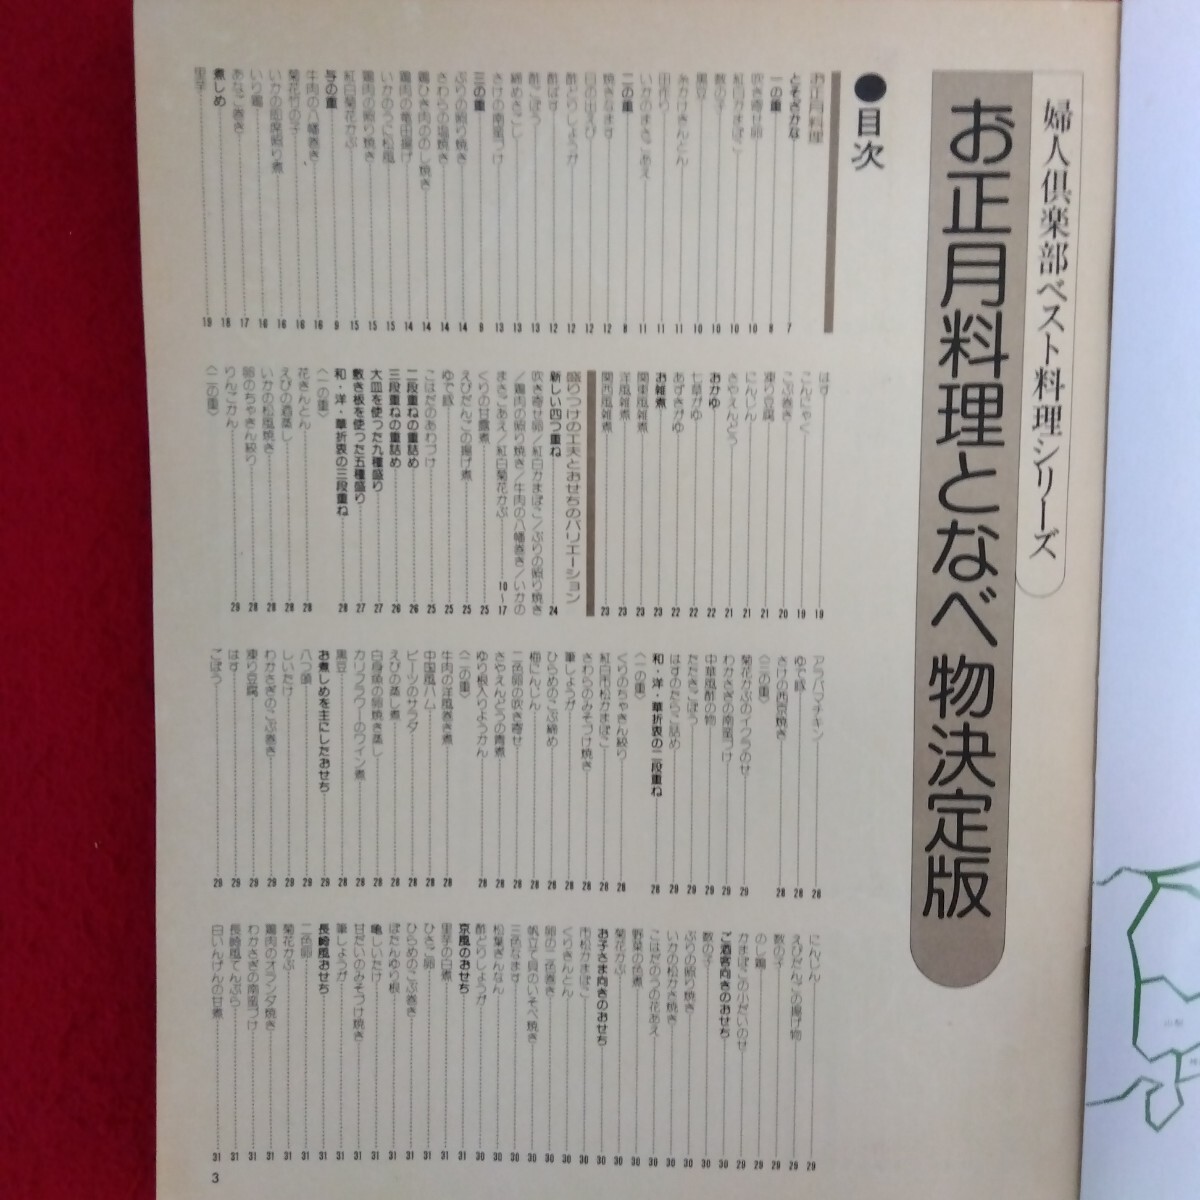 婦人倶楽部ベスト料理シリーズ
お正月料理となべ物決定版
●目次
お正月料理
とそざかな 7
一の重 8
吹き寄せ卵 10
紅白かまぼこ 10
数の子 10
黒豆 10
糸かけきんとん 11
田作り 11
いかのまさごあえ 11
二の重 8
焼きなます 12
日の出えび 12
酢どりしょうが 12
酢ばす 12
酢ごぼう 13
締めさごし 13
さけの南蛮づけ 13
三の重 9
ぶりの照り焼き 14
さわらの塩焼き 14
鶏ひき肉ののし焼き 14
鶏肉の竜田揚げ 14
いかのうに松風 15
鶏肉の照り焼き 15
紅白菊花かぶ 15
与の重 9
牛肉の八幡巻き 16
菊花竹の子 16
いかの即席照り煮 16
いり鶏 16
あなご巻き 17
煮しめ 18
里芋 19
はす 19
こんにゃく 19
こぶ巻き 20
凍り豆腐 21
にんじん 21
さやえんどう 21
おかゆ 22
七草がゆ 22
あずきがゆ 22
お雑煮 23
関東風雑煮 23
洋風雑煮 23
関西風雑煮 23
盛りつけの工夫とおせちのバリエーション
新しい四つ重ね 24
吹き寄せ卵／紅白かまぼこ／ぶりの照り焼き
／鶏肉の照り焼き／牛肉の八幡巻き／いかの
まさごあえ／紅白菊花かぶ 10〜17
くりの甘露煮 25
えびだんごの揚げ煮 25
ゆで豚 25
こはだのあわづけ 25
二段重ねの重詰め 26
三段重ねの重詰め 26
大皿を使った九種盛り 27
敷き板を使った五種盛り 27
和・洋・華折衷の三段重ね 28
〈一の重〉
花きんとん 28
えびの酒蒸し 28
いかの松風焼き 28
卵のちゃきん絞り 28
りんごかん 29
〈二の重〉
アラバマチキン 28
ゆで豚 28
さけの西京焼き 28
〈三の重〉
菊花かぶのイクラのせ 29
わかさぎの南蛮づけ 29
中華風酢の物 29
たたきごぼう 29
はすのたらこ詰め 29
和・洋・華折衷の二段重ね 28
〈一の重〉
くりのちゃきん絞り 28
紅白市松かまぼこ 28
さわらのみそづけ焼き 28
筆しょうが 28
ひらめのこぶ締め 28
梅にんじん 28
二色卵の吹き寄せ 28
さやえんどうの青煮 28
ゆり根入りようかん 28
〈二の重〉
牛肉の洋風巻き煮 28
中国風ハム 28
ビーツのサラダ 28
えびの蒸し煮 28
白身魚の卵焼き蒸し 28
カリフラワーのワイン煮 28
黒豆 28
お煮しめを主にしたおせち 29
八つ頭 29
しいたけ 29
わかさぎのこぶ巻き 29
凍り豆腐 29
はす 29
ごぼう 29
にんじん 29
えびだんごの揚げ物 29
数の子 29
のし鶏 29
かまぼこの小だいのせ 29
ご酒客向きのおせち 30
数の子 30
ぶりの照り焼き 30
いかの松かさ焼き 30
こはだのうの花あえ 30
野菜の色煮 30
菊花かぶ 30
お子さま向きのおせち 30
市松かまぼこ 30
くりきんとん 30
卵の二色巻き 30
帆立て貝のいそべ焼き 30
三色なます 30
松葉ぎんなん 30
酢どりしょうが 30
京風のおせち 31
里芋の白煮 31
ひさご卵 31
ひらめのこぶ巻き 31
ぼたんゆり根 31
亀しいたけ 31
甘だいのみそづけ焼き 31
筆しょうが 31
長崎風おせち 31
二色卵 31
菊花かぶ 31
鶏肉のオランダ焼き 31
わかさぎの南蛮づけ 31
長崎風てんぷら 31
白いんげんの甘煮 31
3
山梨